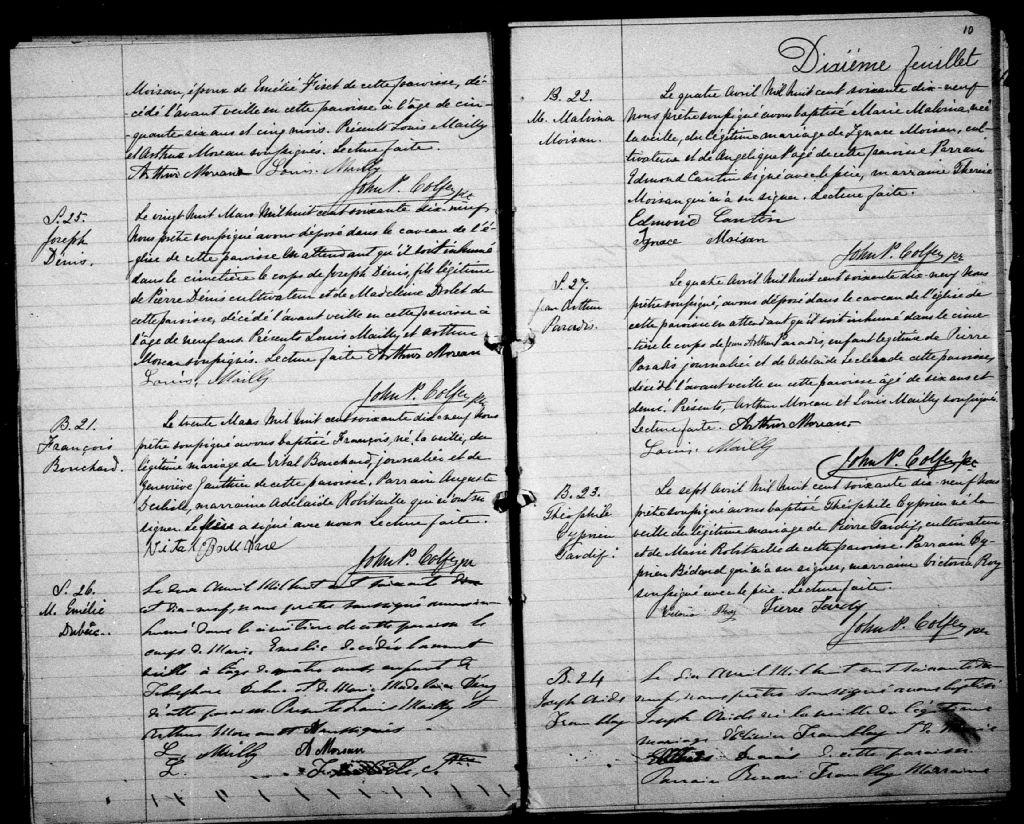 Moisan, époux de Emélie Fiset de cette paroisse, dé-
cédé l'avant veille en cette paroisse à l'âge de cin-
quante six ans et cinq mois. Présents Louis Mailly
et Arthur Moreau soussignés. Lecture faite.
Arthur Moreau Louis Mailly
John P. Colfer ptre
S. 25.
Joseph
Dénis.
Le vingt huit Mars Mil huit cent soixante dix-neuf
Nous prêtre soussigné avons déposé dans le caveau de l'é-
glise de cette paroisse en attendant qu'il soit inhumé
dans le cimetière le corps de Joseph Dénis, fils légitime
de Pierre Dénis cultivateur et de Madeleine Drolet de
cette paroisse, décédé l'avant veille en cette paroisse à
l'âge de neuf ans. Présents Louis Mailly et Arthur
Moreau soussignés. Lecture faite Arthur Moreau
Louis Mailly
John P. Colfer ptre
B. 21.
François
Bouchard.
Le trente Mars Mil huit cent soixante dix-neuf nous
prêtre soussigné avons baptisé François, né la veille, du
légitime mariage de Vital Bouchard, journalier et de
Geneviève Gauthier de cette paroisse. Parrain Auguste
Delisle, marraine Adélaide Robitaille qui n'ont su
signer. Le père a signé avec nous. Lecture faite.
Vital
John P. Colfer ptre
S. 26.
M. Emélie
Dubuc.
Le Avril Mil huit cent soixante
et dix-neuf, nous prêtre soussigné avons in-
humé dans le cimetière de cette paroisse le
corps de Marie Emélie décédée l'avant
veille à l'âge de quatre ans, enfant de
Télesphore et de Marie Madeleine
de cette paroisse. Présents Louis Mailly et
Arthur Moreau soussignés
L. Mailly A Moreau
10
Dixième feuillet
B. 22.
M. Malvina
Moisan.
Le quatre Avril Mil huit cent soixante dix-neuf
Nous prêtre soussigné avons baptisé Marie Malvina, née
la veille, du légitime mariage de Ignace Moisan, cul-
tivateur et de Angelique Pagé de cette paroisse Parrain
Edmond Cantin signé avec le père, marraine Thérèse
Moisan qui n'a su signer. Lecture faite.
Edmond Cantin
Ignace Moisan
John P. Colfer ptre
S. 27.
Jean Arthur
Paradis.
Le quatre Avril Mil huit cent soixante dix-neuf Nous
prêtre soussigné, avons déposé dans le caveau de l'église de
cette paroisse en attendant qu'il soit inhumé dans le cime-
tière le corps de Jean Arthur Paradis, enfant légitime de Pierre
Paradis journalier et de Adelaide Leclerc de cette paroisse,
décédé l'avant veille en cette paroisse âgé de six ans et
demi. Présents, Arthur Moreau et Louis Mailly soussignés
Lecture faite. Arthur Moreau.
Louis Mailly
John P. Colfer ptre
B. 23.
Théophile
Cyprien
Tardif.
Le sept Avril Mil huit cent soixante dix-neuf Nous
prêtre soussigné avons baptisé Théophile Cyprien né la
veille du légitime mariage de Pierre Tardif, cultivateur
et de Marie Robitaille de cette paroisse. Parrain Cy-
prien Bédard qui n'a su signer, marraine Victoria Roy
soussignée avec le père. Lecture faite.
Victoria Roy Pierre Tardif
John P. Colfer ptre
B. 24
Joseph Ovide
Tremblay
Le dix Avril Mil huit cent soixante dix
neuf, nous prêtre soussigné avons baptisé
Joseph Ovide né la veille du légitime
mariage d'Olivier Tremblay et de Marie
de cette paroisse
Parrain Benoni Tremblay Marraine